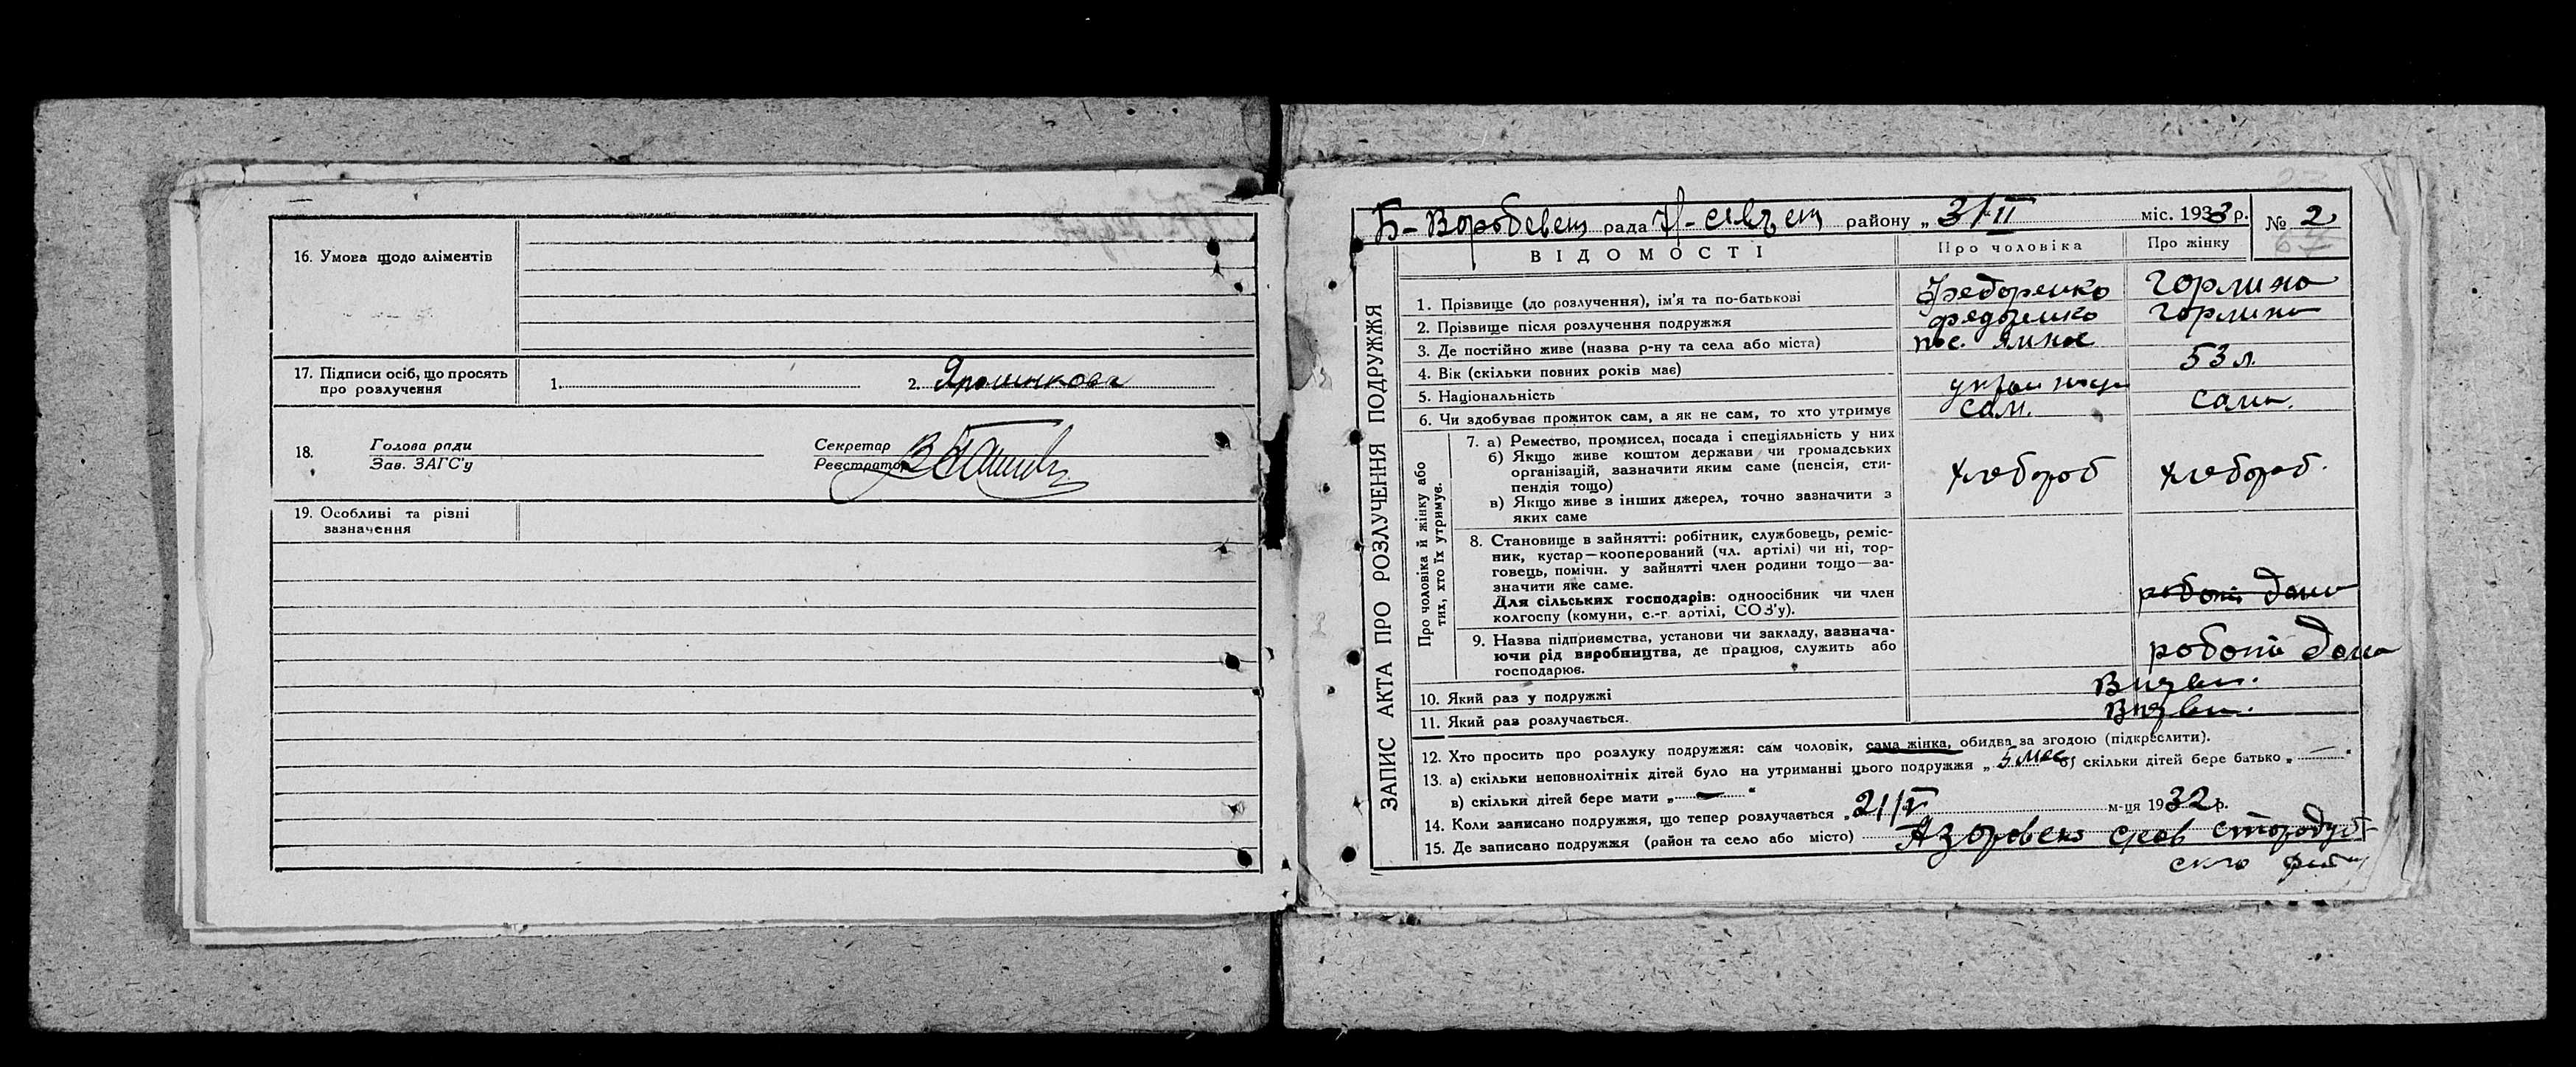 16. Умова щодо аліментів
17. Підписи осіб, що просять
про розлучення
1. 2.
18. Голова ради
Зав. ЗАГС'у
Секретар
Реєстратор
19. Особливі та різні
зазначення
Б-Воробевец рада района „ 31/II міс. 1933 р. № 2
ВІДОМОСТІ Про чоловіка Про жінку
ЗАПИС АКТА ПРО РОЗЛУЧЕННЯ ПОДРУЖЖЯ
1. Прізвище (до розлучення), ім'я та по-батькові Федоренко Горлина
2. Прізвище після розлучення подружжя Федоренко Горлина
3. Де постійно живе (назва р-ну та села або міста) пос.
4. Вік (скільки повних років має) 53 л.
5. Національність
6. Чи здобуває прожиток сам, а як не сам, то хто утримує сам. сама.
Про чоловіка й жінку або
тих, хто їх утримує.
7. а) Ремество, промисел, посада і спеціяльність у них
б) Якщо живе коштом держави чи громадських
організацій, зазначити яким саме (пенсія, сти-
пендія тощо) хлебороб хлебороб.
в) Якщо живе з інших джерел, точно зазначити з
яких саме
8. Становище в зайнятті: робітник, службовець, реміс-
ник, кустар—кооперований (чл. артілі) чи ні, тор-
говець, помічн. у зайнятті член родини тощо—за-
значити яке саме.
Для сільських господарів: одноосібник чи член
колгоспу (комуни, с.-г. артілі, СОЗ'у).
9. Назва підприємства, установи чи закладу, зазнача-
ючи рід виробництва, де працює, служить або
господарює. дома
10. Який раз у подружжі
11. Який раз розлучається.
12. Хто просить про розлуку подружжя: сам чоловік, сама жінка, обидва за згодою (підкреслити).
13. а) скільки неповнолітніх дітей було на утриманні цього подружжя „ 5 мес б) скільки дітей бере батько „ — “
в) скільки дітей бере мати „ — “
14. Коли записано подружжя, що тепер розлучається „ 21/V м-ця 1932 р.
15. Де записано подружжя (район та село або місто)